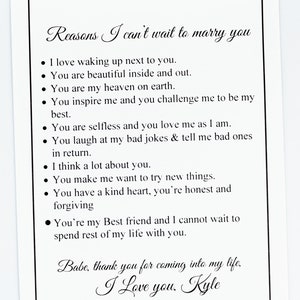 Reasons I can't wait to marry you
• I love waking up next to you.
• You are beautiful inside and out.
• You are my heaven on earth.
• You inspire me and you challenge me to be my
best.
• You are selfless and you love me as I am.
• You laugh at my bad jokes & tell me bad ones
in return.
• I think a lot about you.
• You make me want to try new things.
• You have a kind heart, you're honest and
forgiving
• You're my Best friend and I cannot wait to
spend rest of my life with you.
Babe, thank you for coming into my life.
I Love you, Kyle